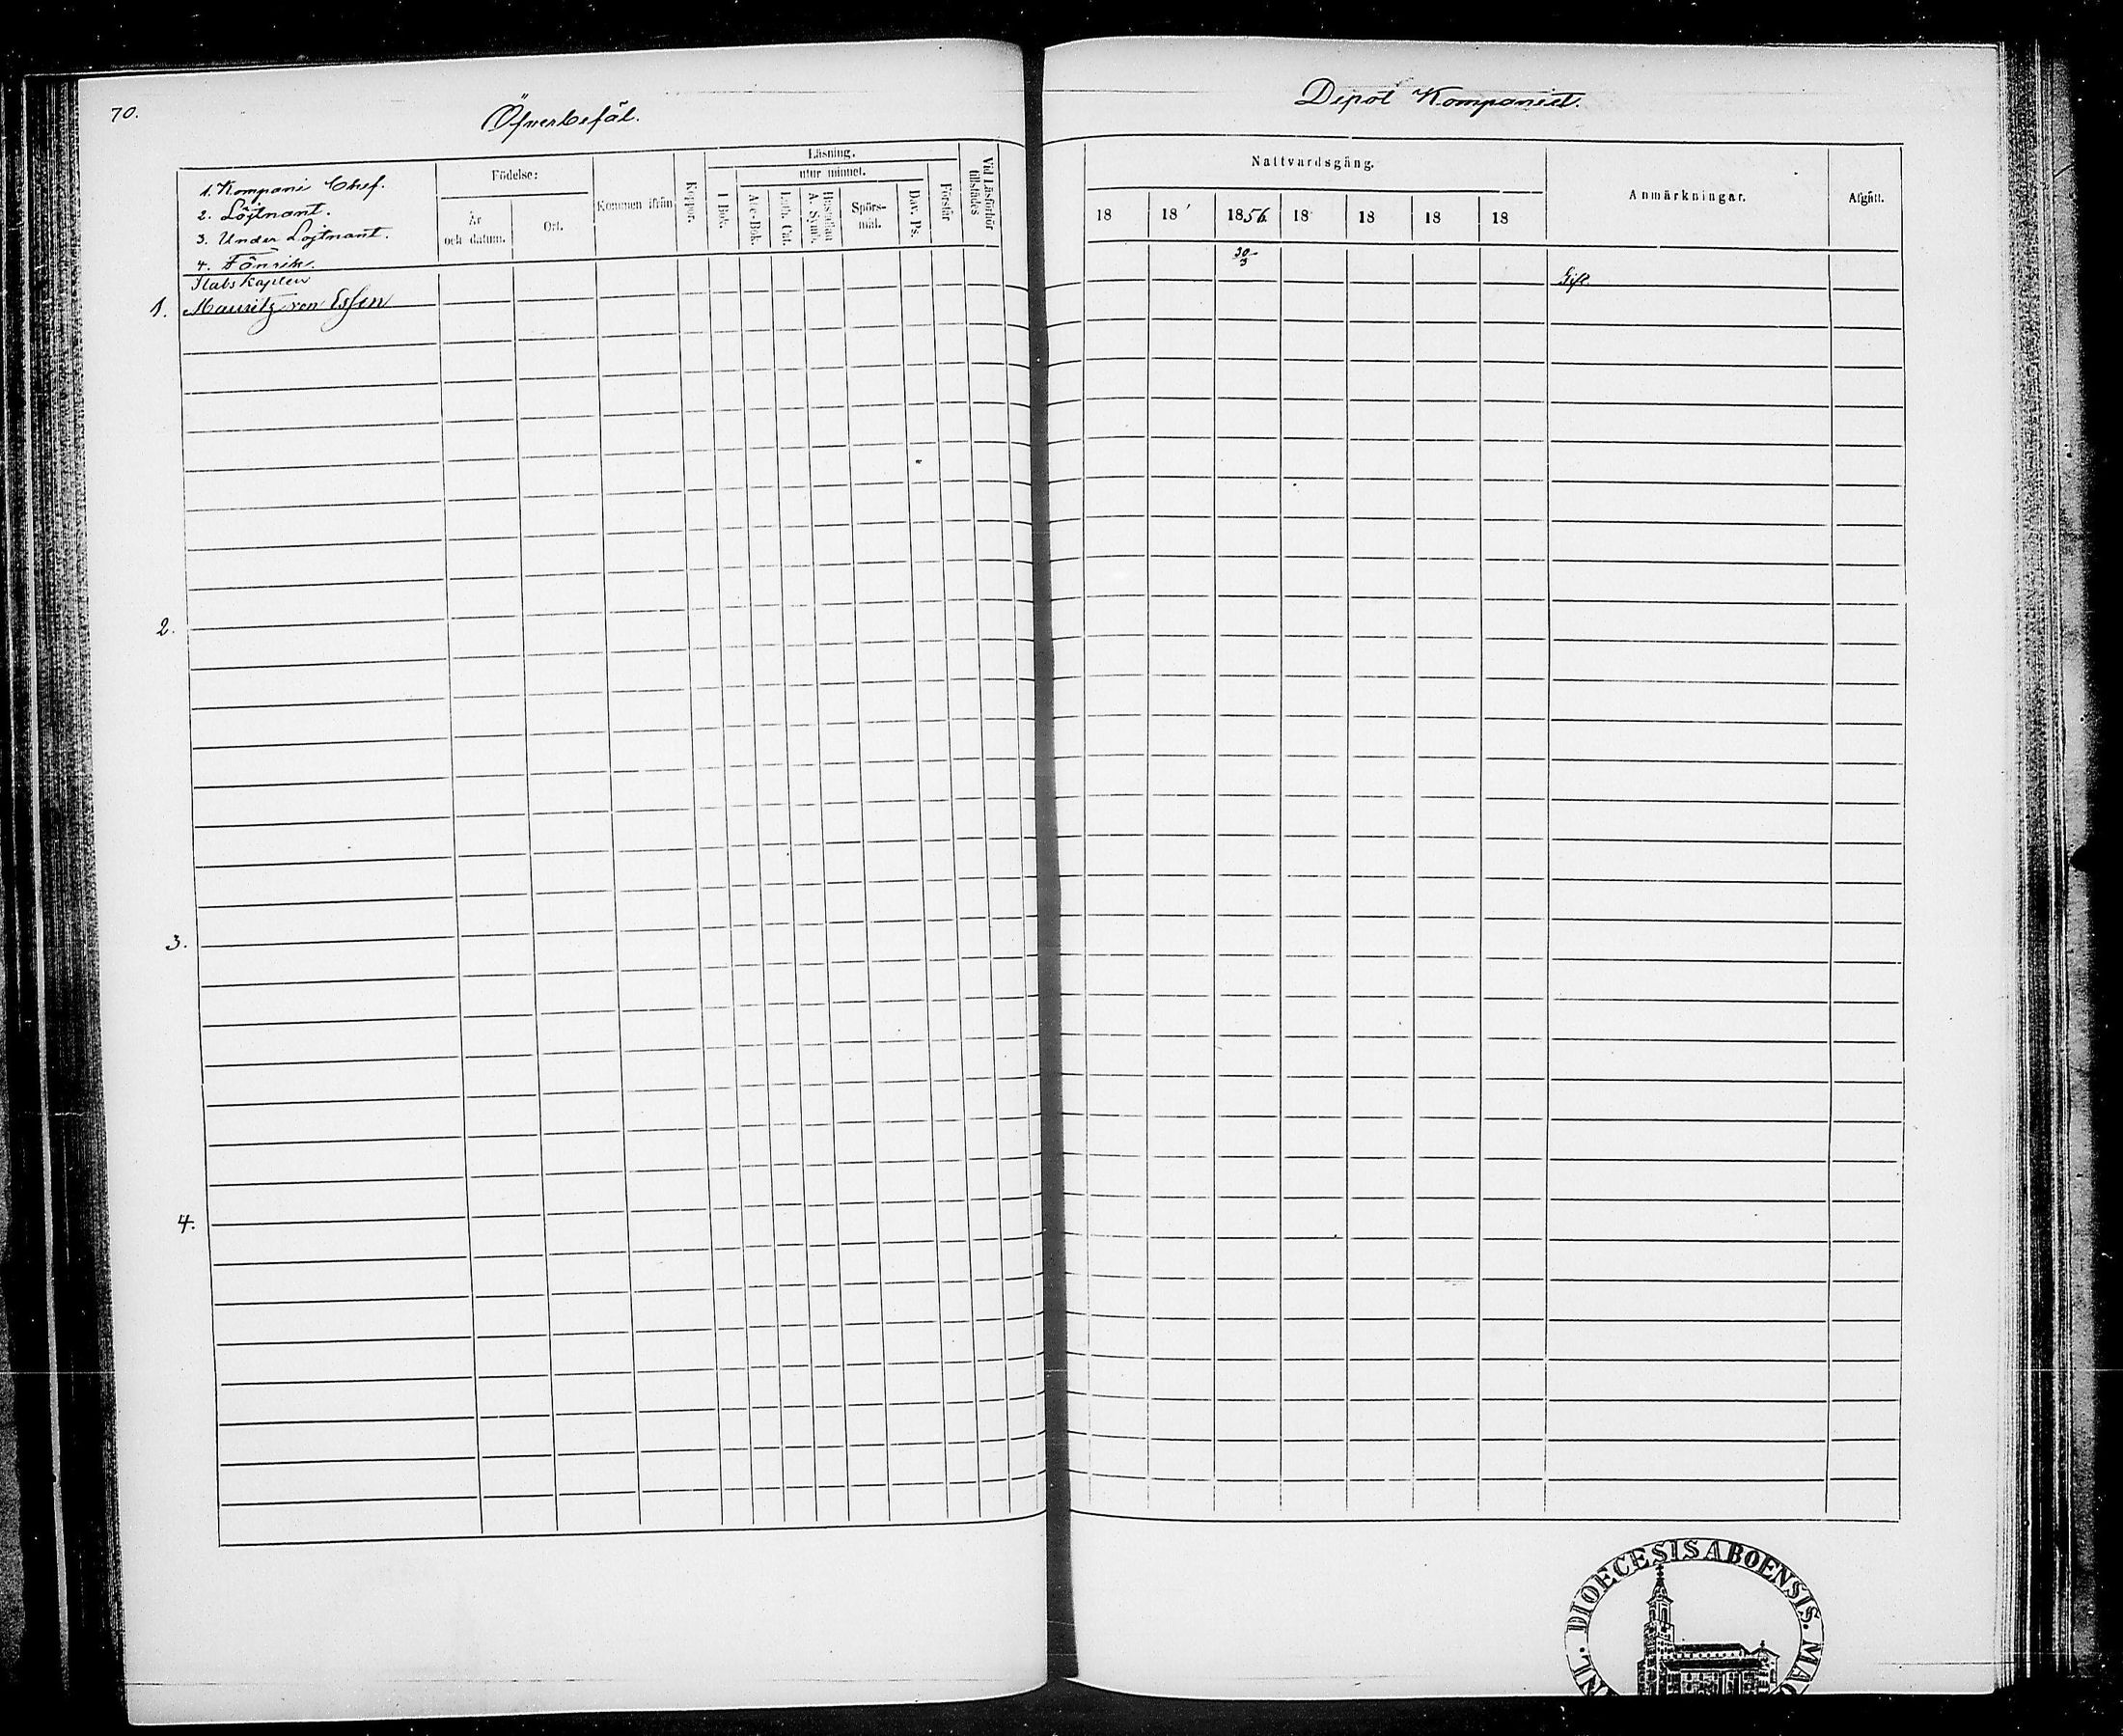 70.
Öfverbefäl.
Depot Kompaniet.
1. Kompani Chef.
2. Löjtnant.
3. Under Löjtnant.
4. Fänrik.
Födelse:
År och datum.
Ort.
Kommen ifrån
Koppor.
Läsning.
utur minnet.
I Bok.
Abc-Bok.
Luth. Cat.
Hustaflan A. Symb.
Spörs-mål.
Dav. Ps.
Förstår
Vid Läsförhör tillstädes
Nattvardsgång.
18
18
1856.
18
18
18
18
Anmärkningar.
Afgått.
Stabs Kapten
1. Mauritz von Essen
30/3
Gift.
2.
3.
4.
DIOECESIS ABOENSIS. MA